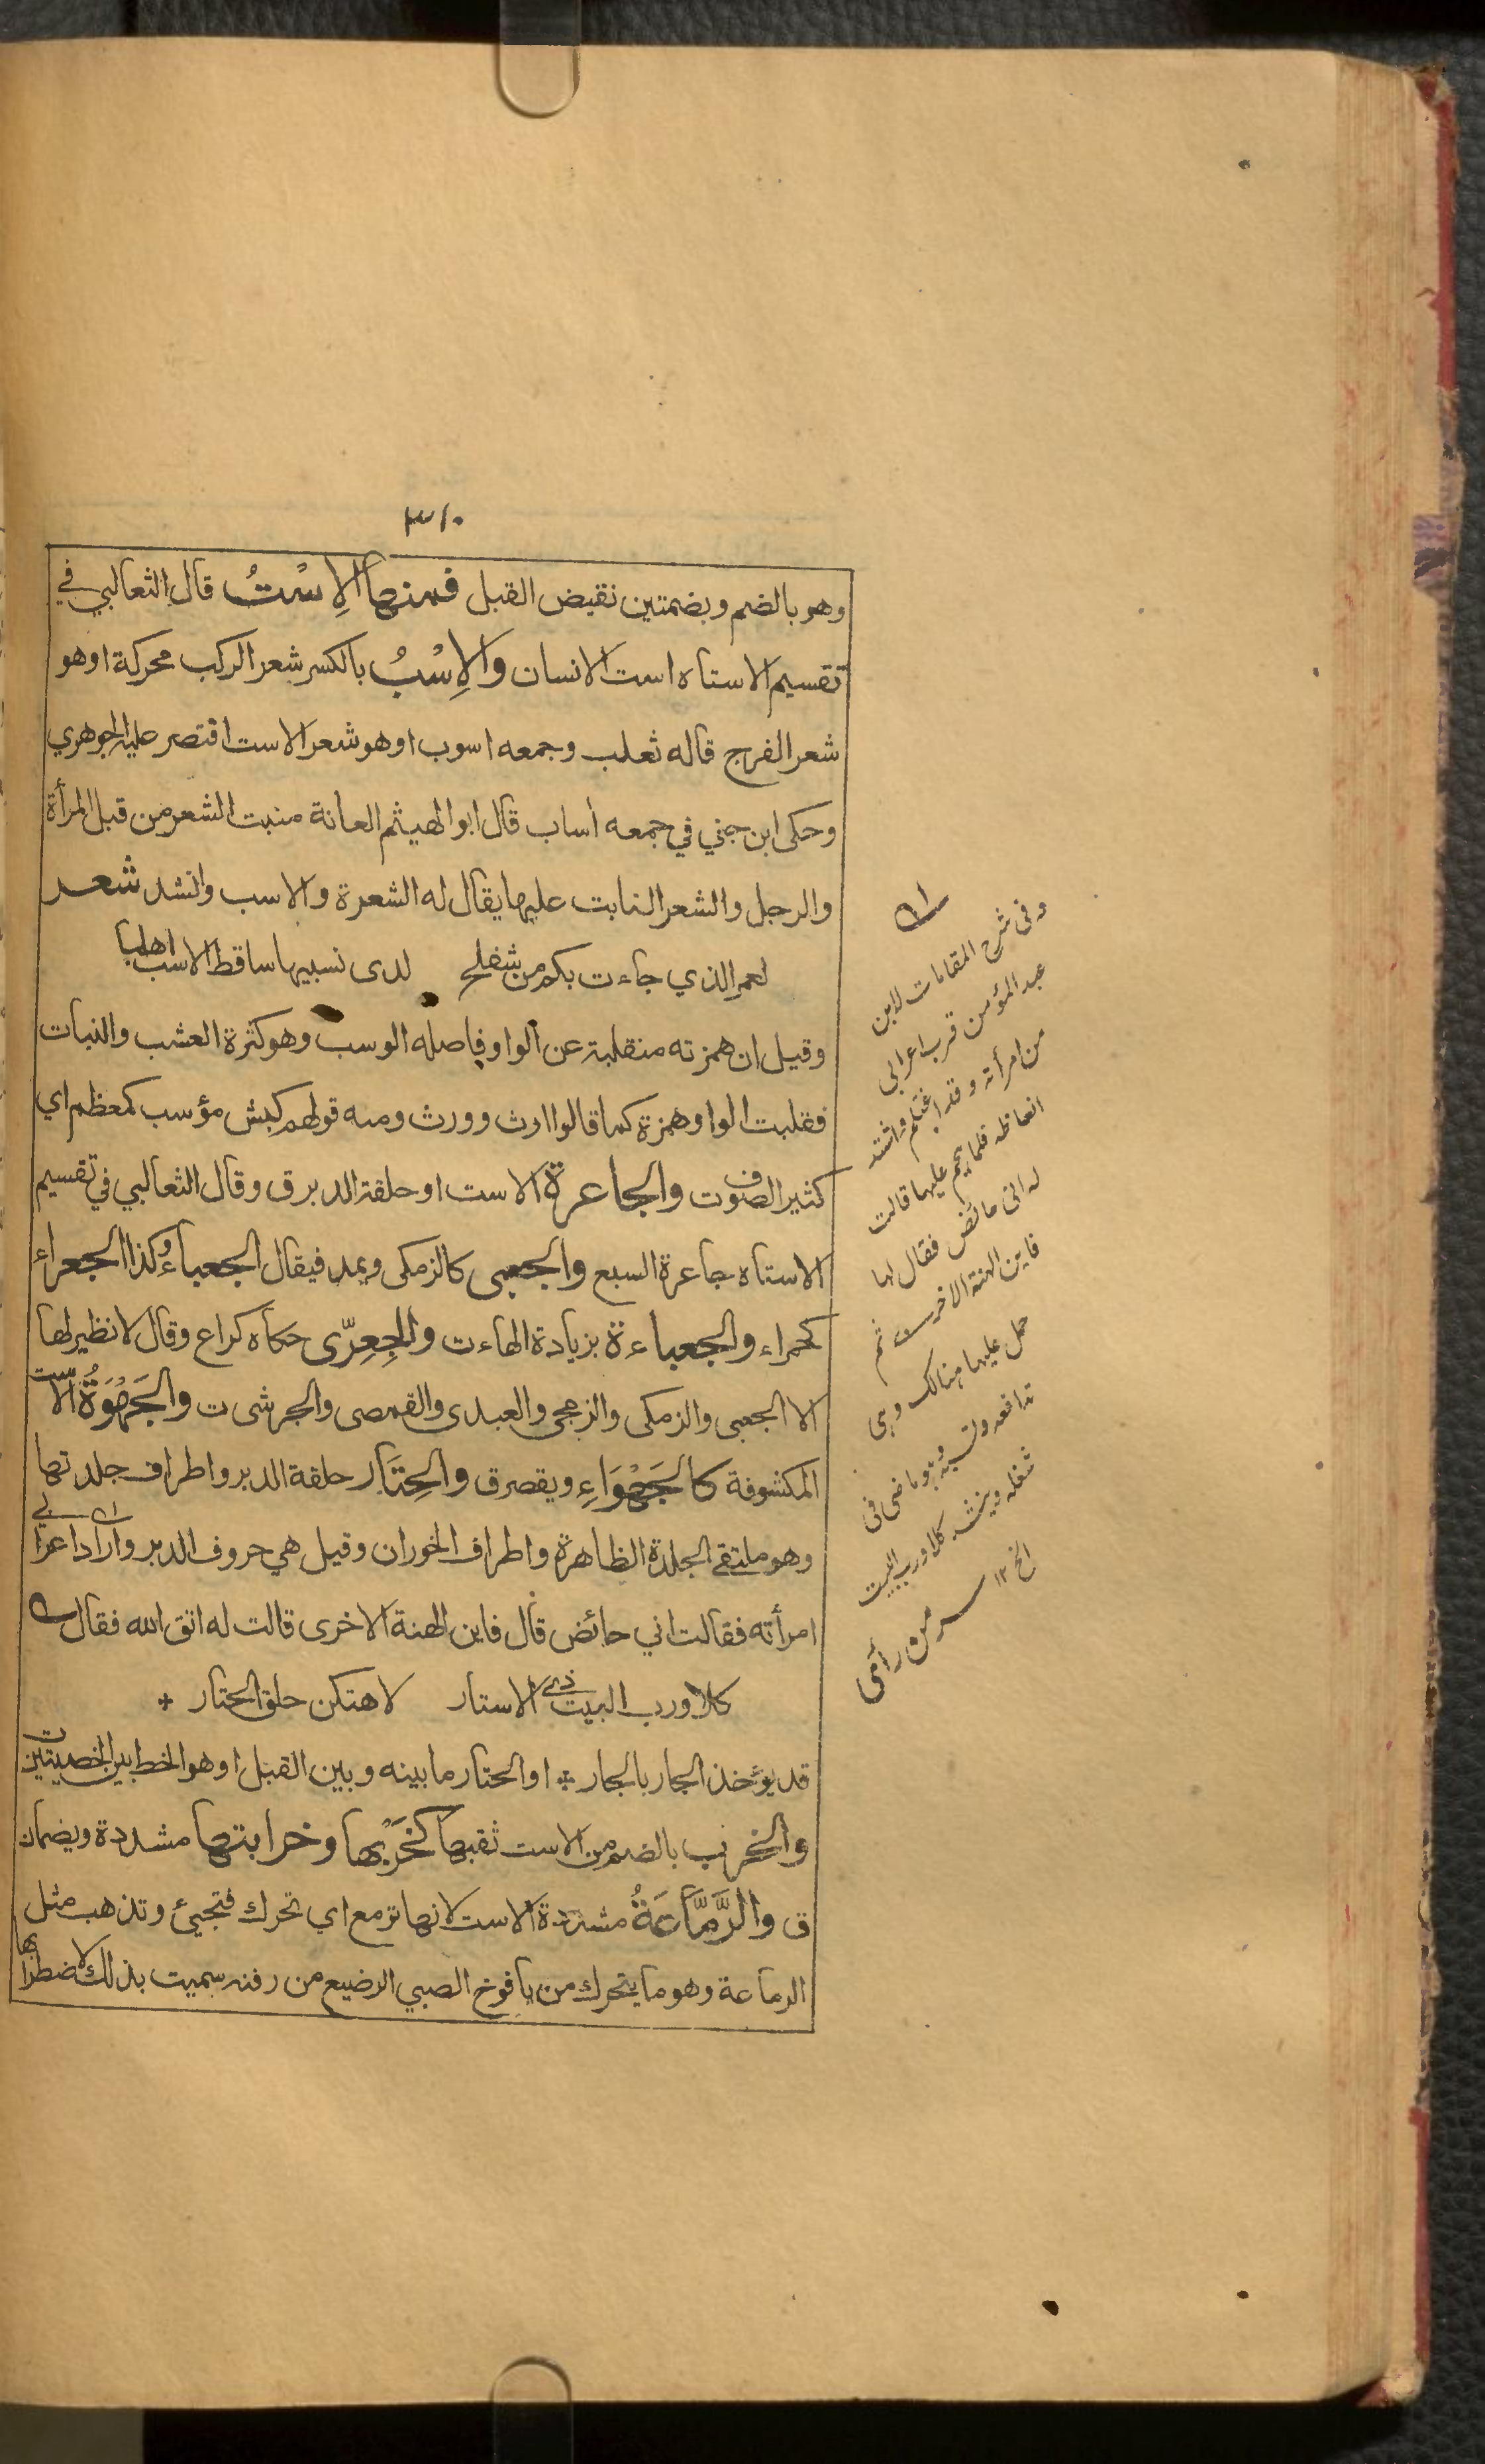 ٣١٠
وهو بالضم وبضمتين نقيض القبل فمنها الِاسْتُ قال الثعالبي في
تقسيم الاستاه است الانسان والِاسْبُ بالكسر شعر الركب محركة او هو
شعر الفرج قاله ثعلب وجمعه اسوب او هو شعر الاست اقتصر عليه الجوهري
وحكى ابن جني في جمعه أساب قال ابو الهيثم العانة منبت الشعر من قبل المرأة
والرجل والشعر النابت عليها يقال له الشعرة والاسب وانشد شعر
لعمر الذي جاءت بكم من شفلح لدى نسييها ساقط الاسب اهلبا
وقيل ان همزته منقلبة عن الواو فاصله الوسب وهو كثرة العشب والنبات
فقلبت الواو همزة كما قالوا ارث وورث ومنه قولهم كبش مؤسب كمعظم اي
كثير الصوف ت والجاعرة الاست او حلقة الدبر ق وقال الثعالبي في تقسيم
الاستاه جاعرة السبع والجعبى كالزمكى ويمد فيقال الجعباءُ وكذا الجعراء
كحمراء والجعباءة بزيادة الهاء ت والجِعِرّى حكاه كراع وقال لا نظير لها
الا الجعبى والزمكى والزمجى والعبدى والقمصى والجرشى ت والجَهْوَةُ الاست
المكشوفة كالجَهْوَاءِ ويقصر ق والحِتَار حلقة الدبر واطراف جلدتها
وهو ملتقى الجلدة الظاهرة واطراف الخوران وقيل هي حروف الدبر واراد اعرابي
امرأته فقالت اني حائض قال فاين الهنة الاخرى قالت له اتق الله فقال
كلا ورب البيت ذي الاستار لاهتكن حلق الحتار *
قد يؤخذ الجار بالجار * او الحتار ما بينه وبين القبل او هو الخط بين الخصيتين ت
والخرب بالضم من الاست ثقبها كخَرْبها وخرابتها مشددة ويضمان
ق والرَّمَّاعَةُ مشددة الاست لانها ترمع اي تحرك فتجيئ وتذهب مثل
الرماعة وهو ما يتحرك من يافوخ الصبي الرضيع من رقته سميت بذلك لاضطرابها
وفى شرح المقامات لابن
عبد المؤمن قرب اعرابى
من امرأته وقد اغتلم واشتد
انعاظه فلما هجم عليها قالت
له انى حائض فقال لها
فاين الهنة الاخرى ثم
حمل عليها هنالك وهى
تدافعه وتسبه وهو ماضى فى
شغله وينشد كلا ورب البيت
الخ ١٢